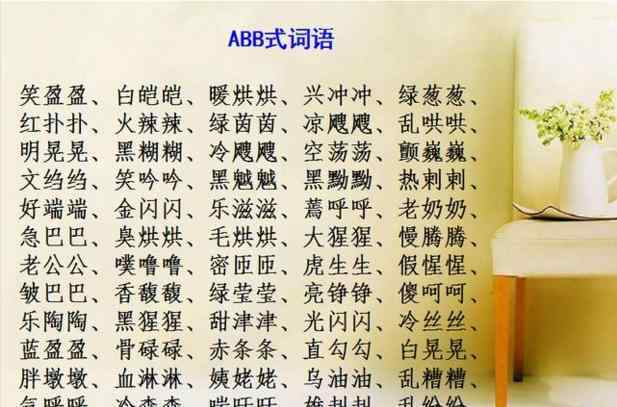 ABB式词语
笑盈盈、白皑皑、暖烘烘、兴冲冲、绿葱葱、
红扑扑、火辣辣、绿茵茵、凉飕飕、乱哄哄、
明晃晃、黑糊糊、冷飕飕、空荡荡、颤巍巍、
文绉绉、笑吟吟、黑魆魆、黑黝黝、热剌剌、
好端端、金闪闪、乐滋滋、蔫呼呼、老奶奶、
急巴巴、臭烘烘、毛烘烘、大猩猩、慢腾腾、
老公公、噗噜噜、密匝匝、虎生生、假惺惺、
皱巴巴、香馥馥、绿莹莹、亮铮铮、傻呵呵、
乐陶陶、黑猩猩、甜津津、光闪闪、冷丝丝、
蓝盈盈、骨碌碌、赤条条、直勾勾、白晃晃、
胖墩墩、血淋淋、姨姥姥、乌油油、乱糟糟、
气呼呼、冷森森、喘吁吁、雄赳赳、乱纷纷、